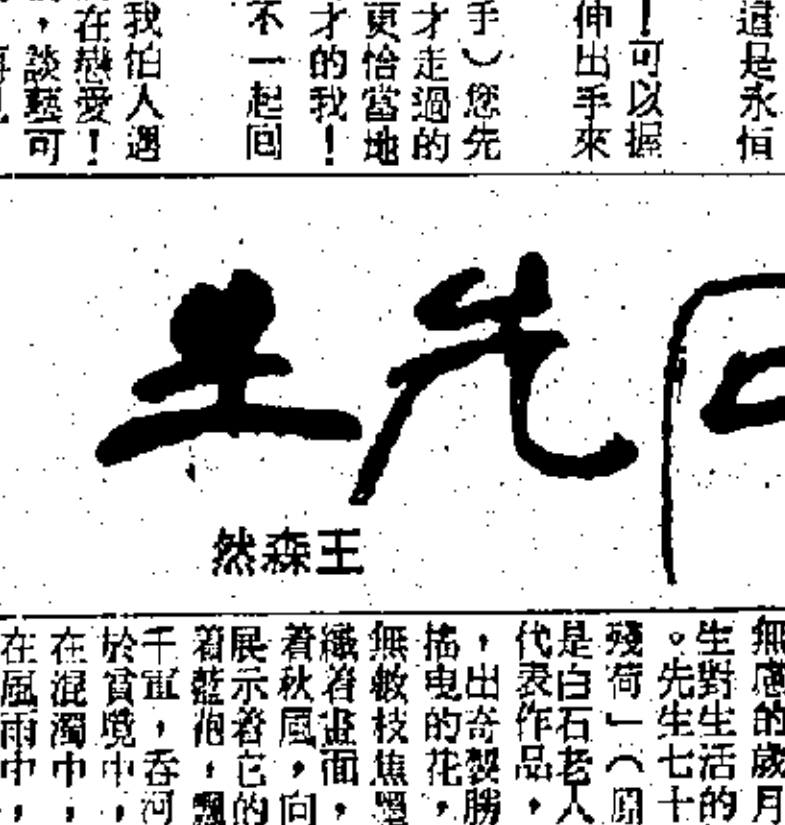 這是永恒
！可以握
伸出手來
手）您先
才走過的
更恰當地
才的我！
不一起回
我怕人遇
在戀愛！
，談藝可
先生
王森然
無慮的歲月
生對生活的
。先生七十
殘荷」（原
是白石老人
代表作品，
，出奇製勝
搖曳的花，
無數枝焦墨
織着畫面，
着秋風，向
展示着它的
着藍袍，飄
千軍，吞河
於貧境中，
在混濁中，
在風雨中，